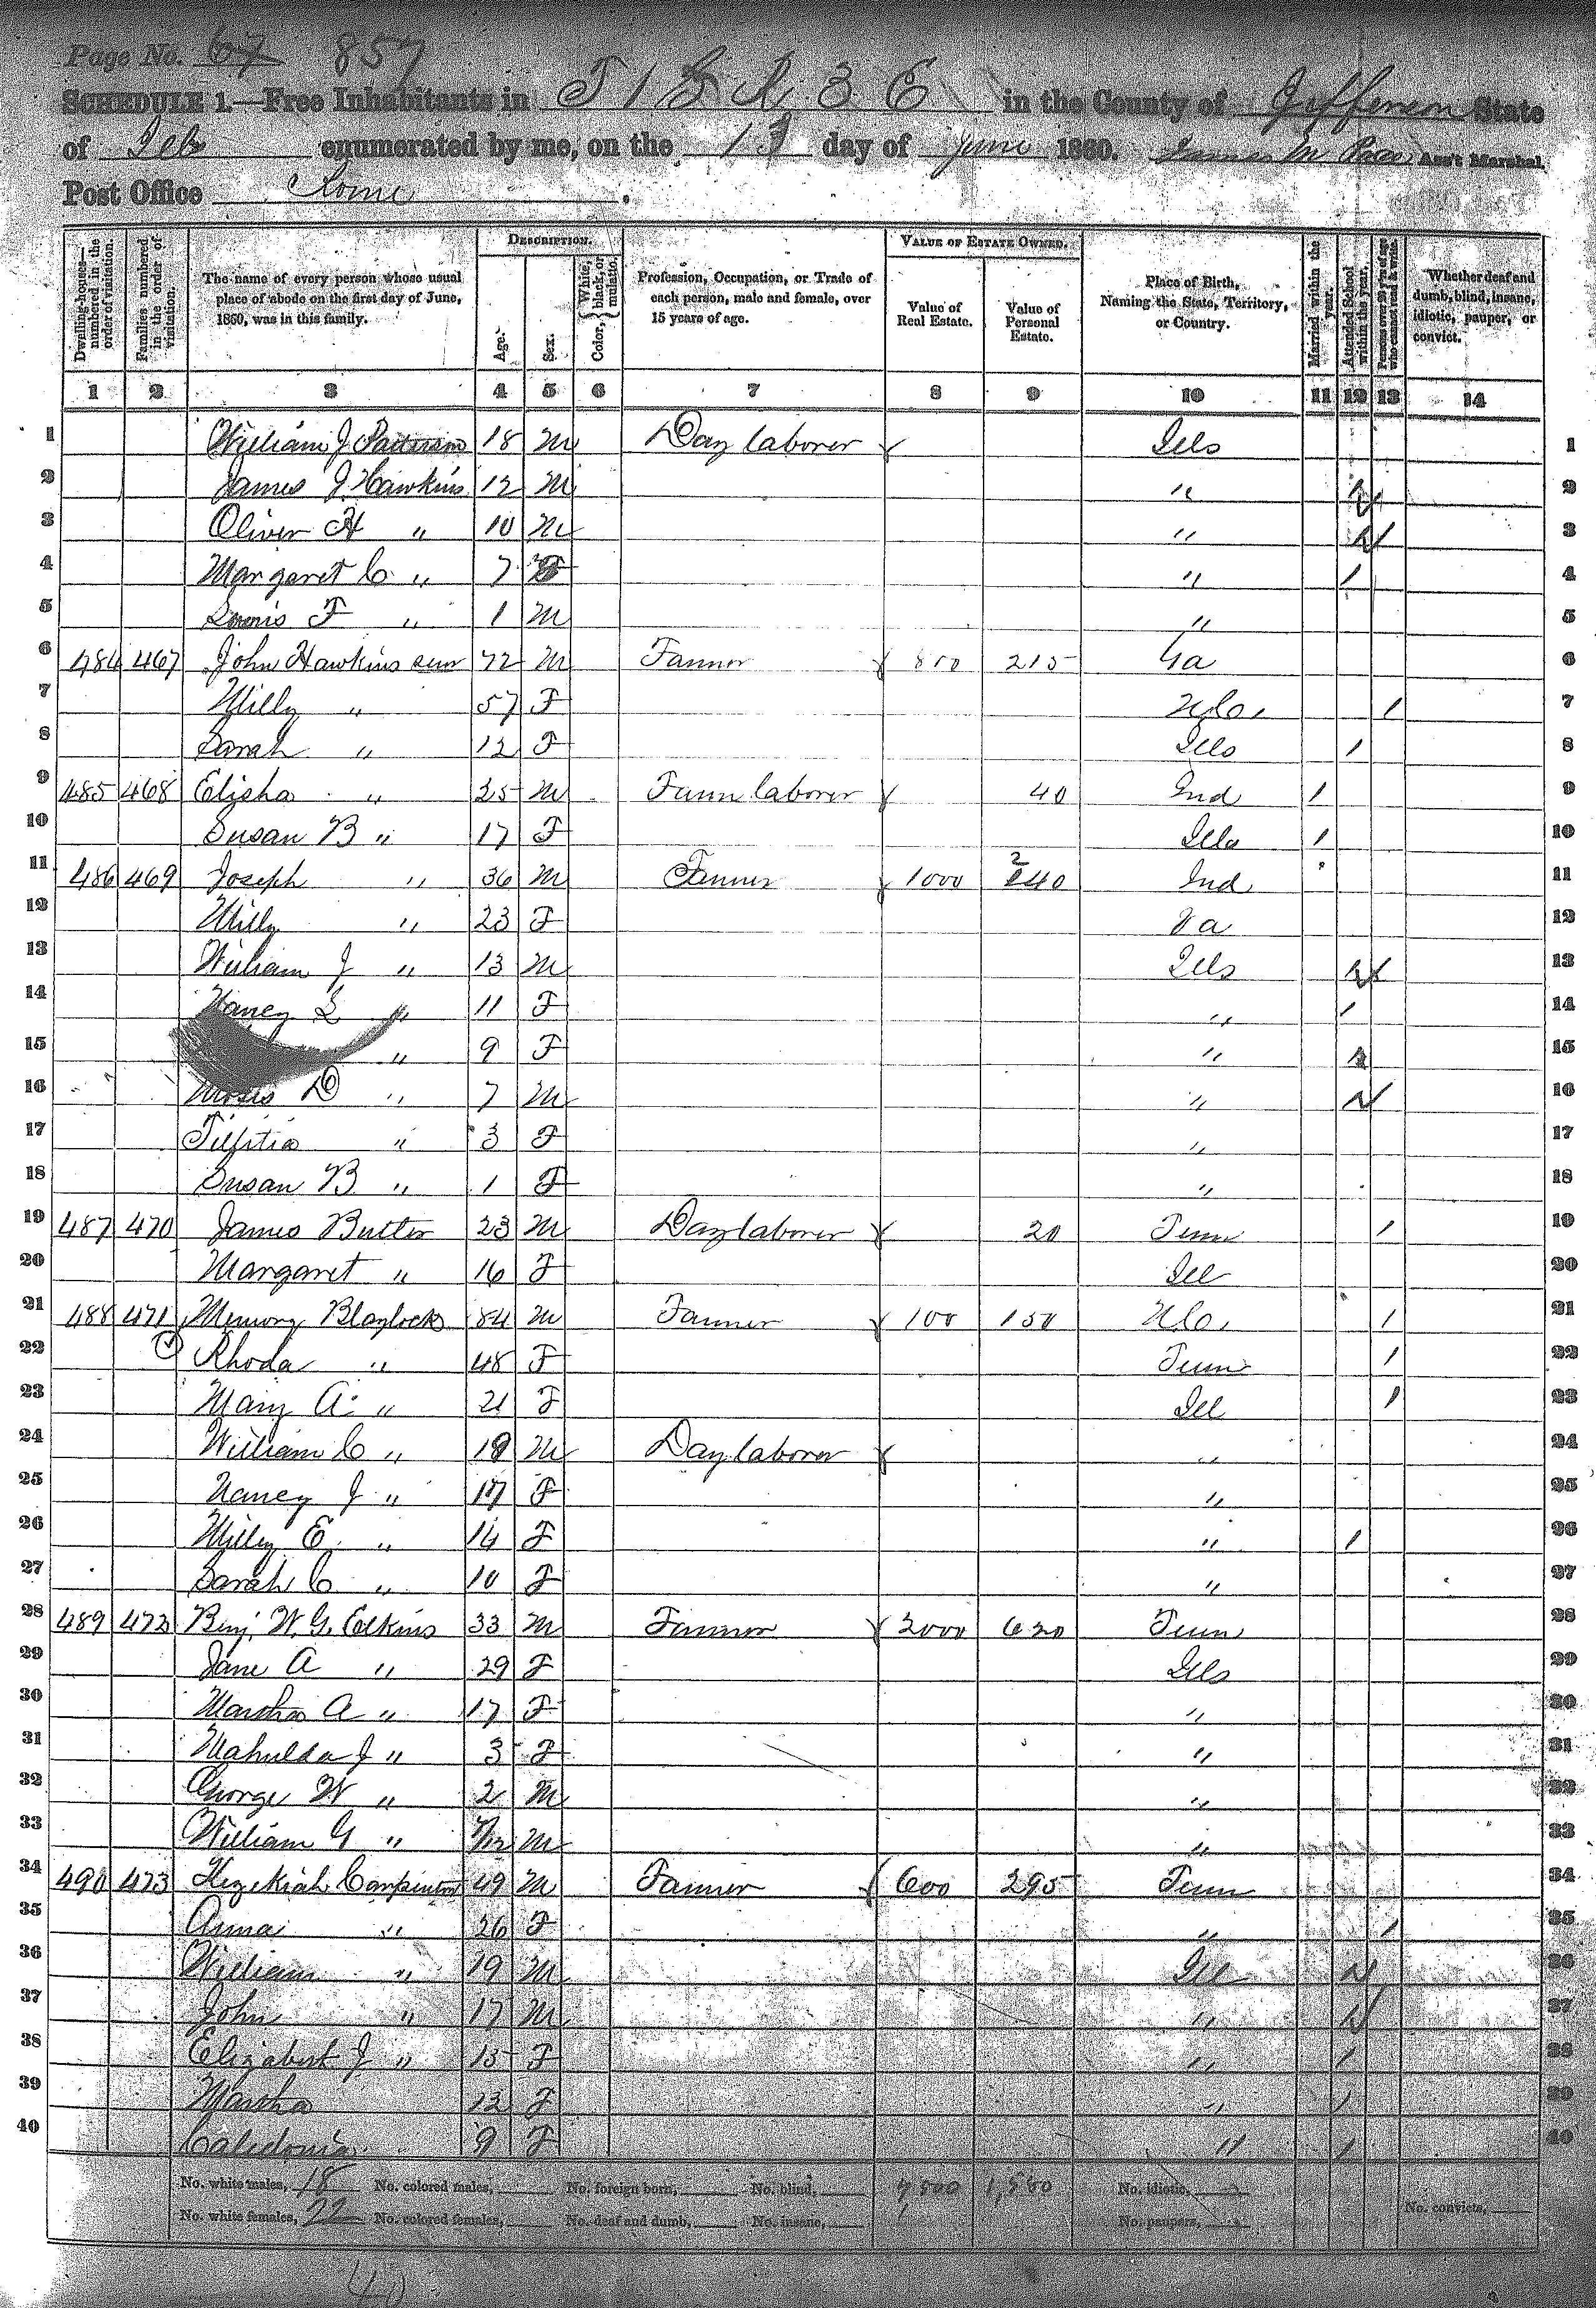 Page No. 67 857
SCHEDULE 1.—Free Inhabitants in T 1 S R 3 E in the County of Jefferson State
of Ills enumerated by me, on the 13 day of June 1860. James M Pace Ass't Marshal.
Post Office Rome.
Dwelling-houses—numbered in the order of visitation. Families numbered in the order of visitation. The name of every person whose usual place of abode on the first day of June, 1860, was in this family. DESCRIPTION. Age. Sex. Color, {White, black, or mulatto. Profession, Occupation, or Trade of each person, male and female, over 15 years of age. VALUE OF ESTATE OWNED. Value of Real Estate. Value of Personal Estate. Place of Birth, Naming the State, Territory, or Country. Married within the year. Attended School within the year. Persons over 20 y'rs of age who cannot read & write. Whether deaf and dumb, blind, insane, idiotic, pauper, or convict.
1 2 3 4 5 6 7 8 9 10 11 12 13 14
1 William J Patterson 18 M Day laborer Ills 1
2 James J. Hawkins 12 M " 2
3 Oliver H " 10 M " 3
4 Margaret C " 7 F " / 4
5 Louis F " 1 M " 5
6 484 467 John Hawkins sen 72 M Farmer 800 215 Ga 6
7 Milly " 57 F N.C. / 7
8 Sarah " 12 F Ills / 8
9 485 468 Elisha " 25 M Farm laborer 40 Ind / 9
10 Susan B " 17 F Ills / 10
11 486 469 Joseph " 36 M Farmer 1000 240 Ind 11
12 Milly " 23 F Va 12
13 William J " 13 M Ills 13
14 Nancy S " 11 F " / 14
15 " 9 F " 15
16 Moses D " 7 M " 16
17 " 3 F " 17
18 Susan B " 1 F " 18
19 487 470 James Butler 23 M Day laborer 20 Tenn / 19
20 Margaret " 16 F Ill 20
21 488 471 Memory Blaylock 84 M Farmer 100 150 N.C. / 21
22 Rhoda " 48 F Tenn / 22
23 Mary A. " 21 F Ill / 23
24 William C " 19 M Day laborer " 24
25 Nancy J " 17 F " 25
26 Milly E. " 14 F " / 26
27 Sarah C " 10 F " 27
28 489 472 Benj. W. G. Elkins 33 M Farmer 2000 620 Tenn 28
29 Jane A " 29 F Ills 29
30 Martha A " 17 F " 30
31 Mahulda J " 3 F " 31
32 George W " 2 M " 32
33 William G " M " 33
34 490 473 Hezekiah Carpenter 49 M Farmer 600 295 Tenn 34
35 Anna " 26 F " / 35
36 William " 19 M Ill 36
37 John " 17 M " 37
38 Elizabeth J " 15 F " / 38
39 Martha 12 F " / 39
40 Caledonia 9 F " / 40
No. white males, 18 No. colored males, No. foreign born, No. blind, 4500 1,580 No. idiotic,
No. white females, 22 No. colored females, No. deaf and dumb, No. insane, No. paupers, No. convicts,
40